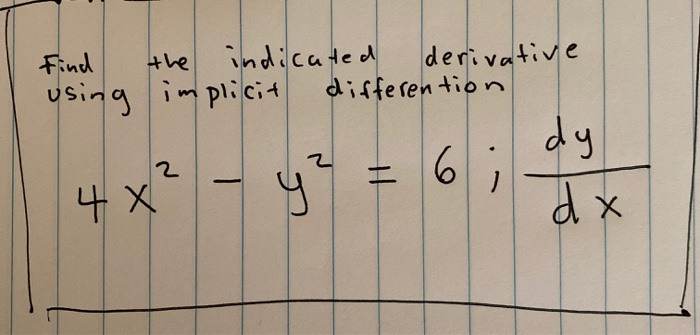 Find the indicated derivative
using implicit differention
4x² - y² = 6 ; dy/dx